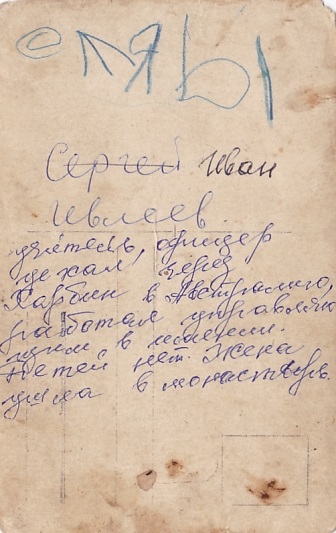 Сергей Иван
Ивлеев.
учитель, офицер
уехал через
Харбин в Австралию,
работал управляю
щим в имении.
Детей нет. Жена
ушла в монастырь